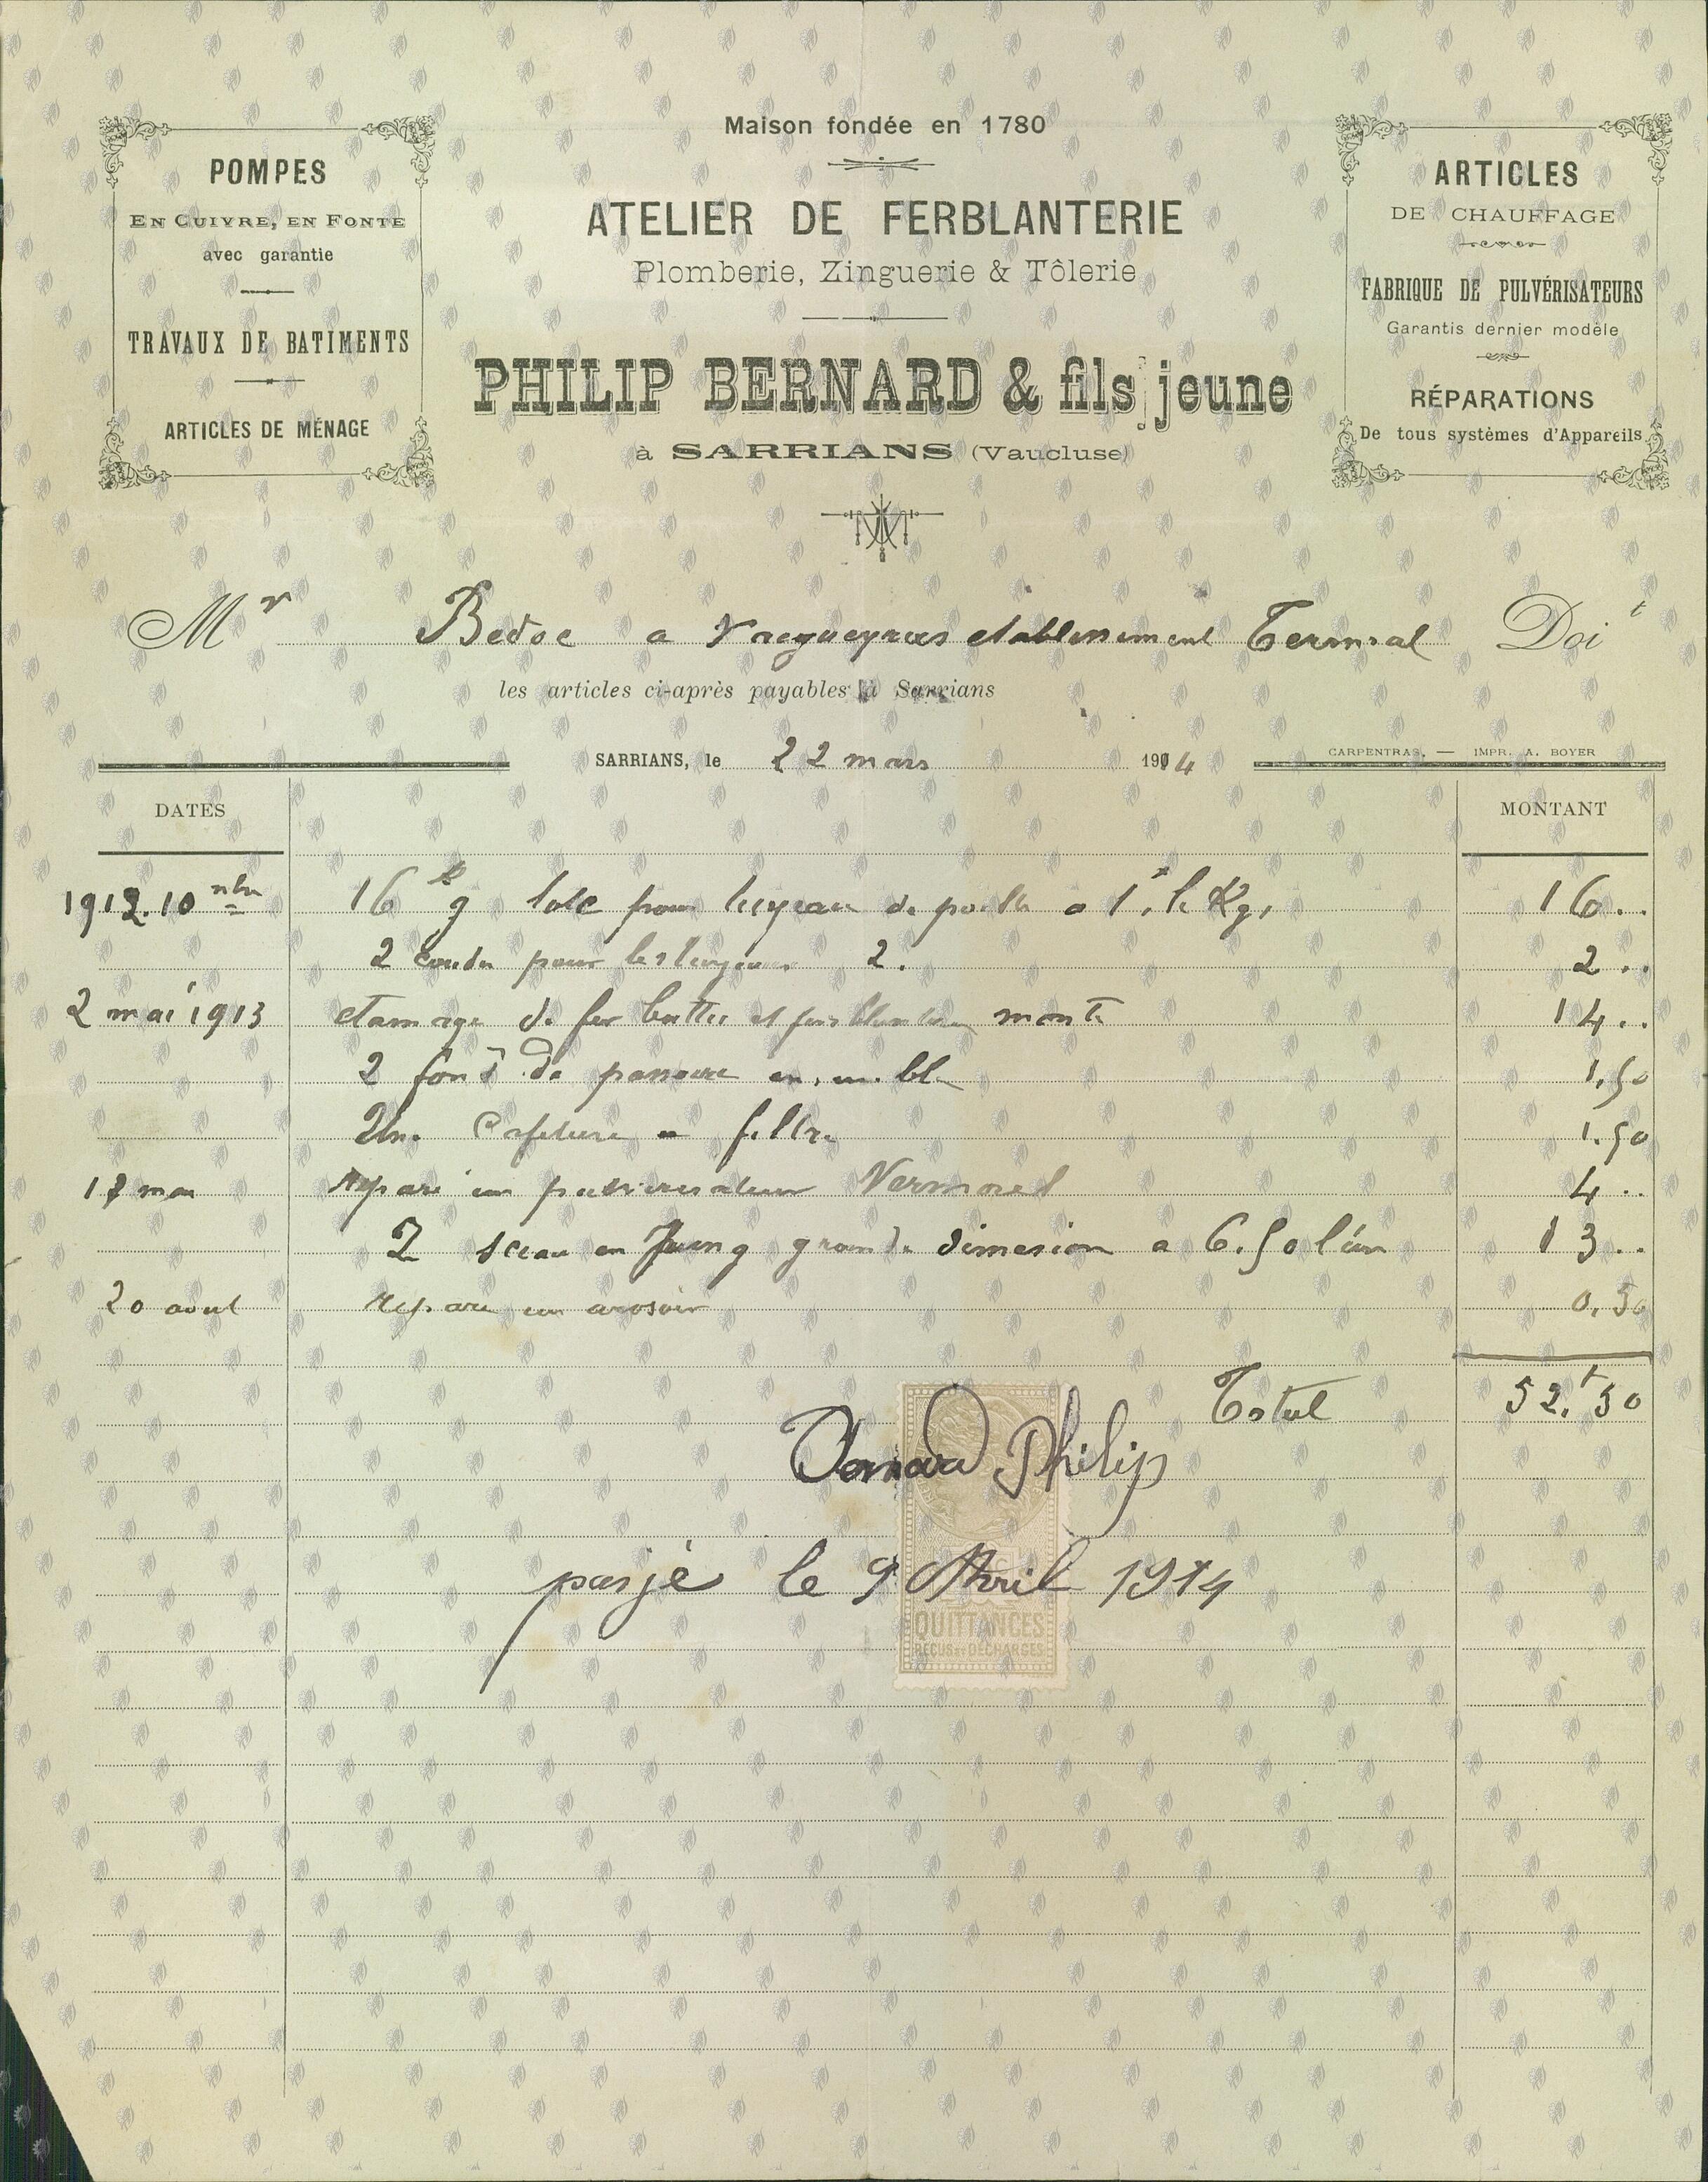 Maison fondée en 1780
POMPES
EN CUIVRE, EN FONTE
avec garantie
TRAVAUX DE BATIMENTS
ARTICLES DE MÉNAGE
ATELIER DE FERBLANTERIE
Plomberie, Zinguerie & Tôlerie
PHILIP BERNARD & fils jeune
à SARRIANS (Vaucluse)
ARTICLES
DE CHAUFFAGE
FABRIQUE DE PULVÉRISATEURS
Garantis dernier modèle
RÉPARATIONS
De tous systèmes d'Appareils
Mr Bedoc a Vacqueyras etablissement Termal Doit
les articles ci-après payables à Sarrians
SARRIANS, le 22 mars 1914
CARPENTRAS. — IMPR. A. BOYER
DATES MONTANT
1912. 10 nbre 16 kg tole pour tuyeau de poille a 1f. le Kg. 16..
2 coudes pour les tuyeaux 2. 2..
2 mai 1913 etamage de fer battu et monté 14..
2 fond de 1.50
Une Cafetiere a filtre 1.50
mai reparé un pulverisateur Vermorel 4..
2 sceau en grande dimesion a 6.50 l'un 13..
20 aout reparé un arosoir 0.50
Total 52.f50
Bernard Philip
payé le 9 Avril 1914
QUITTANCES
REÇUS ET DÉCHARGES